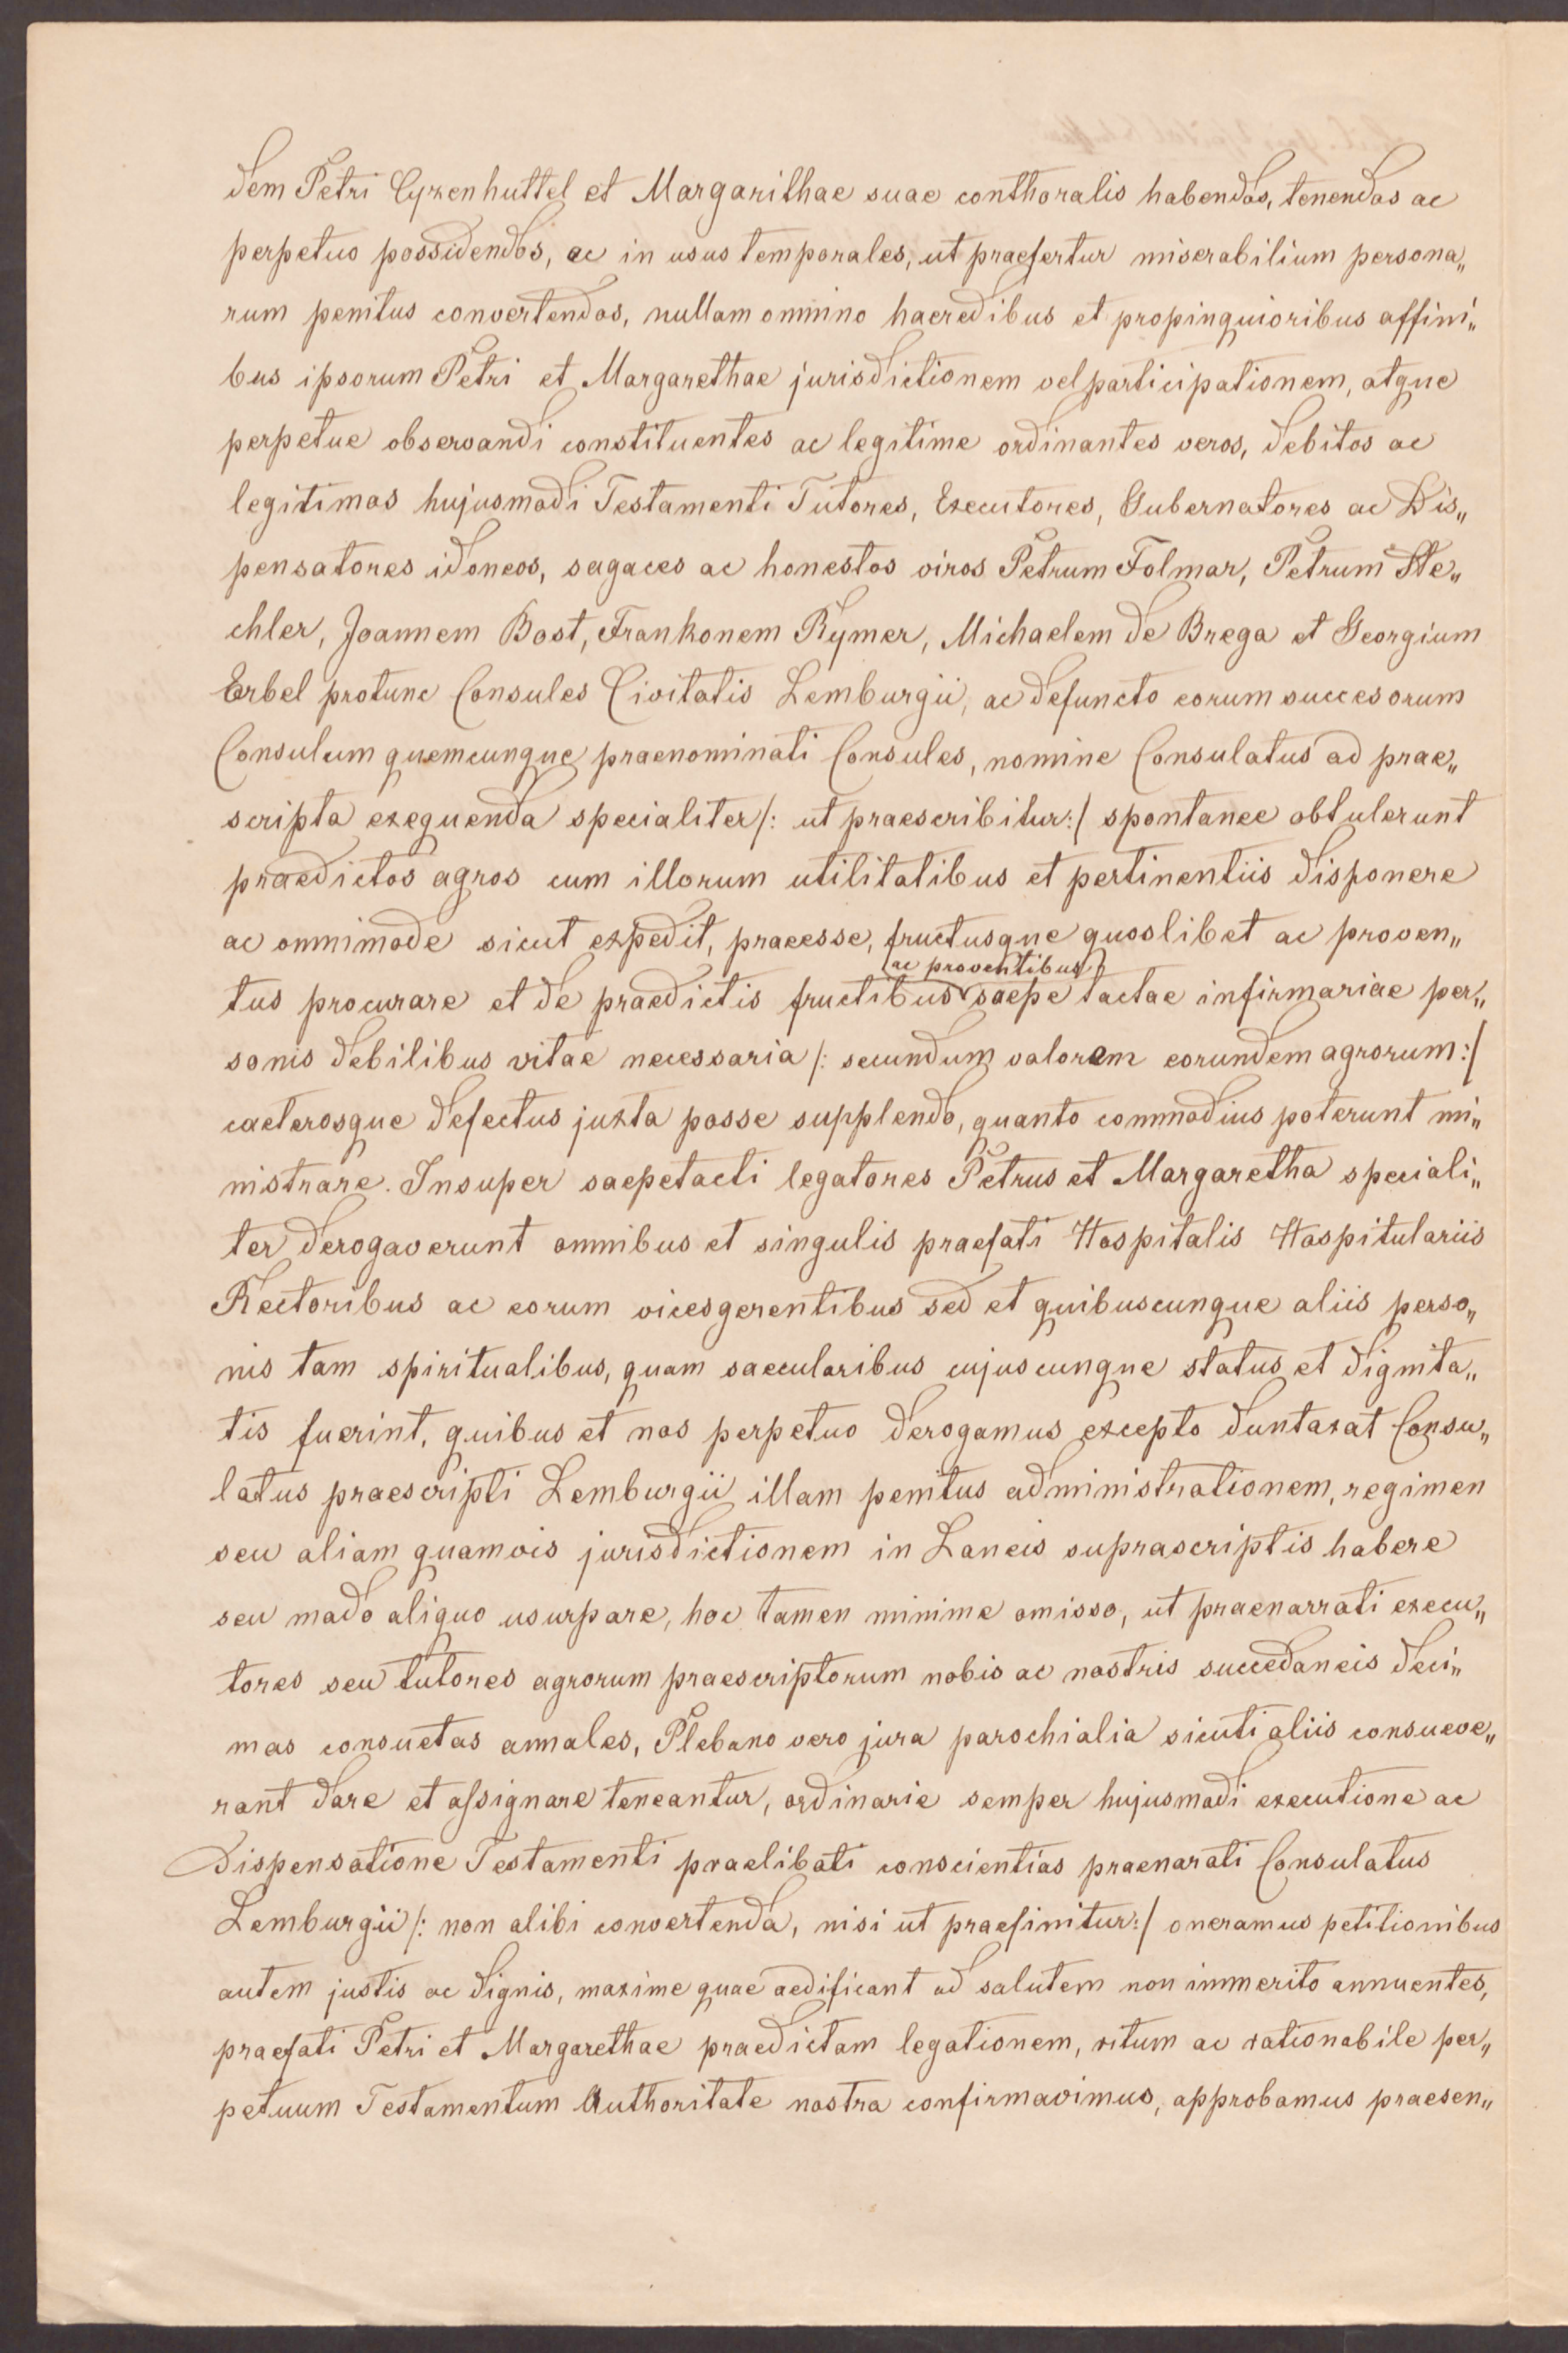 dem Petri Cyzenhuttel et Margarithae suae conthoralis habendos, tenendos ac
perpetuo possidendos, ac in usus temporales, ut praefertur miserabilium persona„
rum penitus convertendos, nullam omnino haeredibus et propinquioribus affini„
bus ipsorum Petri et Margarethae jurisdictionem vel participationem, atque
perpetue observandi constituentes ac legitime ordinantes veros, debitos ac
legitimos hujusmodi Testamenti Tutores, Executores, Gubernatores ac Dis„
pensatores idoneos, sagaces ac honestos viros Petrum Folmar, Petrum Ste„
chler, Joannem Bost, Frankonem Rymer, Michaelem de Brega et Georgium
Erbel protunc Consules Civitatis Lemburgii, ac defuncto eorum succesorum
Consulum quemcunque praenominati Consules, nomine Consulatus ad prae„
scripta exequenda specialiter /: ut praescribitur:/ spontanee obtulerunt
praedictos agros cum illorum utilitatibus et pertinentiis disponere
ac omnimode sicut expedit, praeesse, fructusque quoslibet ac proven„
tus procurare et de praedictis fructibus ac proventibus saepe tactae infirmariae per„
sonis debilibus vitae necessaria /: secundum valorem eorundem agrorum:/
caeterosque defectus juxta posse supplendo, quanto commodius poterunt mi„
nistrare. Insuper saepetacti legatores Petrus et Margaretha speciali„
ter derogaverunt omnibus et singulis praefati Hospitalis Hospitulariis
Rectoribus ac eorum vicesgerentibus sed et quibuscunque aliis perso„
nis tam spiritualibus, quam saecularibus cujuscunque status et dignita„
tis fuerint, quibus et nos perpetuo derogamus excepto duntaxat Consu„
latus praescripti Lemburgii illam penitus administrationem, regimen
seu aliam quamvis jurisdictionem in Laneis suprascriptis habere
seu modo aliquo usurpare, hoc tamen minime omisso, ut praenarrati execu„
tores seu tutores agrorum praescriptorum nobis ac nostris succedaneis deci„
mas consuetas annales, Plebano vero jura parochialia sicuti aliis consueve„
rant dare et assignare teneantur, ordinarie semper hujusmodi executione ac
Dispensatione Testamenti praelibati conscientias praenarati Consulatus
Lemburgii /: non alibi convertenda, nisi ut praefinitur:/ oneramus petitionibus
autem justis ac dignis, maxime quae aedificant ad salutem non immerito annuentes,
praefati Petri et Margarethae praedictam legationem, ritum ac rationabile per„
petuum Testamentum Authoritate nostra confirmavimus, approbamus praesen„